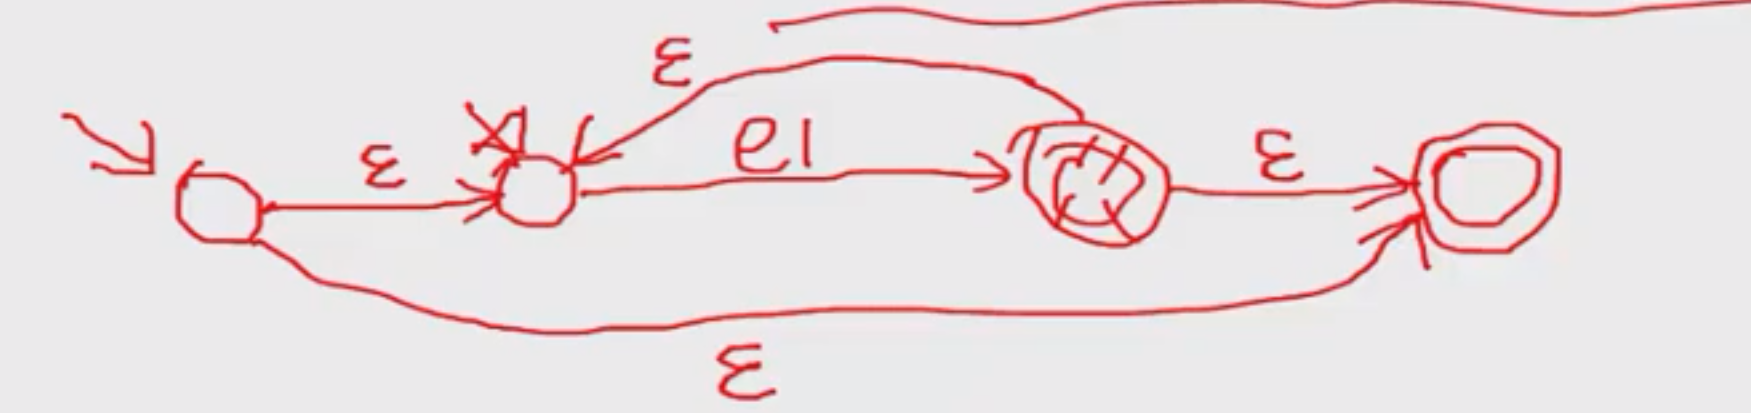 ε
ε e1 ε
ε